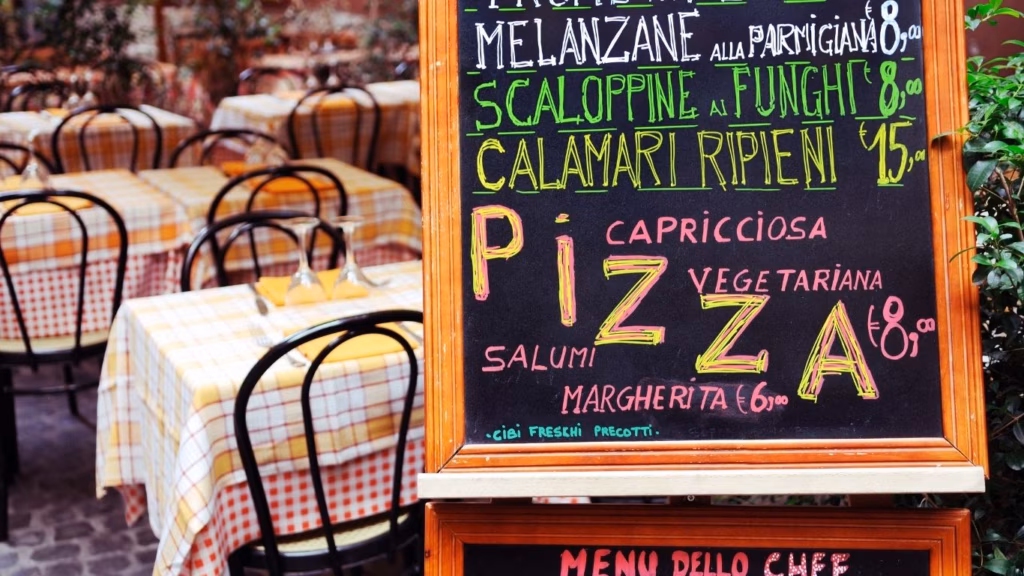 MELANZANE ALLA PARMIGIANA €8,00
SCALOPPINE AI FUNGHI €8,00
CALAMARI RIPIENI €15,00
PIZZA
CAPRICCIOSA
VEGETARIANA
€8,00
SALUMI
MARGHERITA €6,00
·CIBI FRESCHI PRECOTTI·
MENU DELLO CHEF